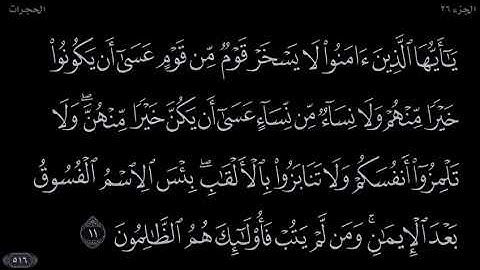 الجزء ٢٦
الحجرات
يَـٰٓأَيُّهَا ٱلَّذِينَ ءَامَنُوا۟ لَا يَسْخَرْ قَوْمٌ مِّن قَوْمٍ عَسَىٰٓ أَن يَكُونُوا۟
خَيْرًا مِّنْهُمْ وَلَا نِسَآءٌ مِّن نِّسَآءٍ عَسَىٰٓ أَن يَكُنَّ خَيْرًا مِّنْهُنَّ ۖ وَلَا
تَلْمِزُوٓا۟ أَنفُسَكُمْ وَلَا تَنَابَزُوا۟ بِٱلْأَلْقَـٰبِ ۖ بِئْسَ ٱلِٱسْمُ ٱلْفُسُوقُ
بَعْدَ ٱلْإِيمَـٰنِ ۚ وَمَن لَّمْ يَتُبْ فَأُو۟لَـٰٓئِكَ هُمُ ٱلظَّـٰلِمُونَ ١١
٥١٦